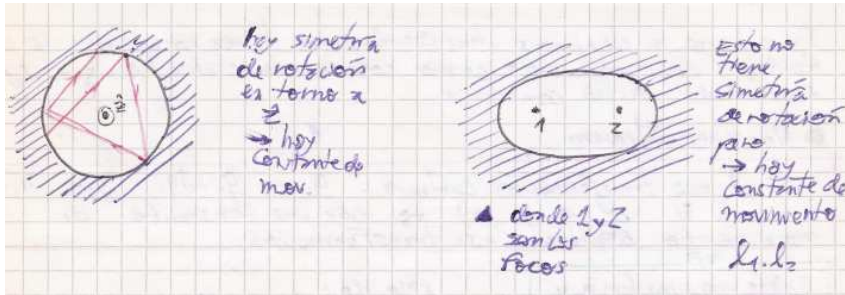 hay simetría
de rotación
en torno a
ẑ
→ hay
constante de
mov.
ẑ
1
2
▲ donde 1 y 2
son los
focos
Esto no
tiene
simetría
de rotación
pero
→ hay
constante de
movimiento
l₁·l₂